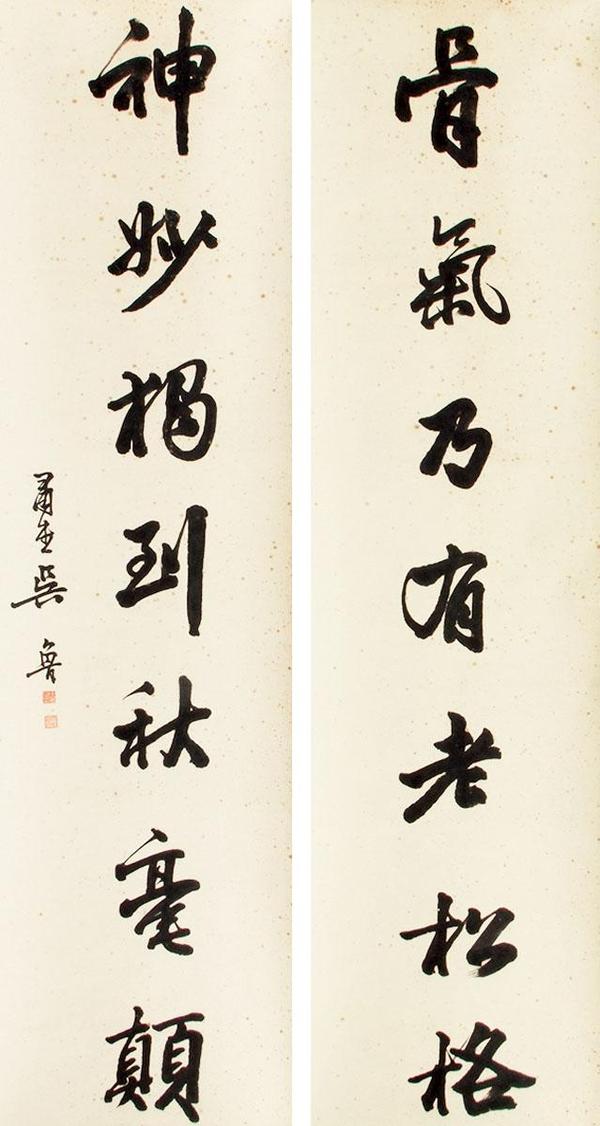 骨氣乃有老松格
神妙獨到秋毫顛
肅堂吳魯